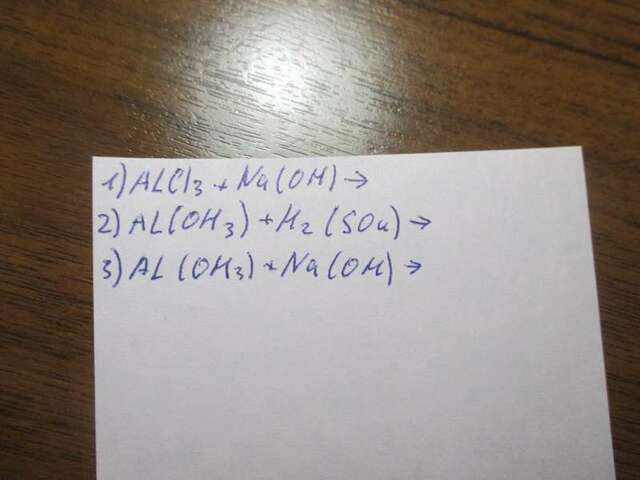 1) ALCl3 + Na(OH) →
2) AL(OH3) + H2(SO4) →
3) AL(OH3) + Na(OH) →